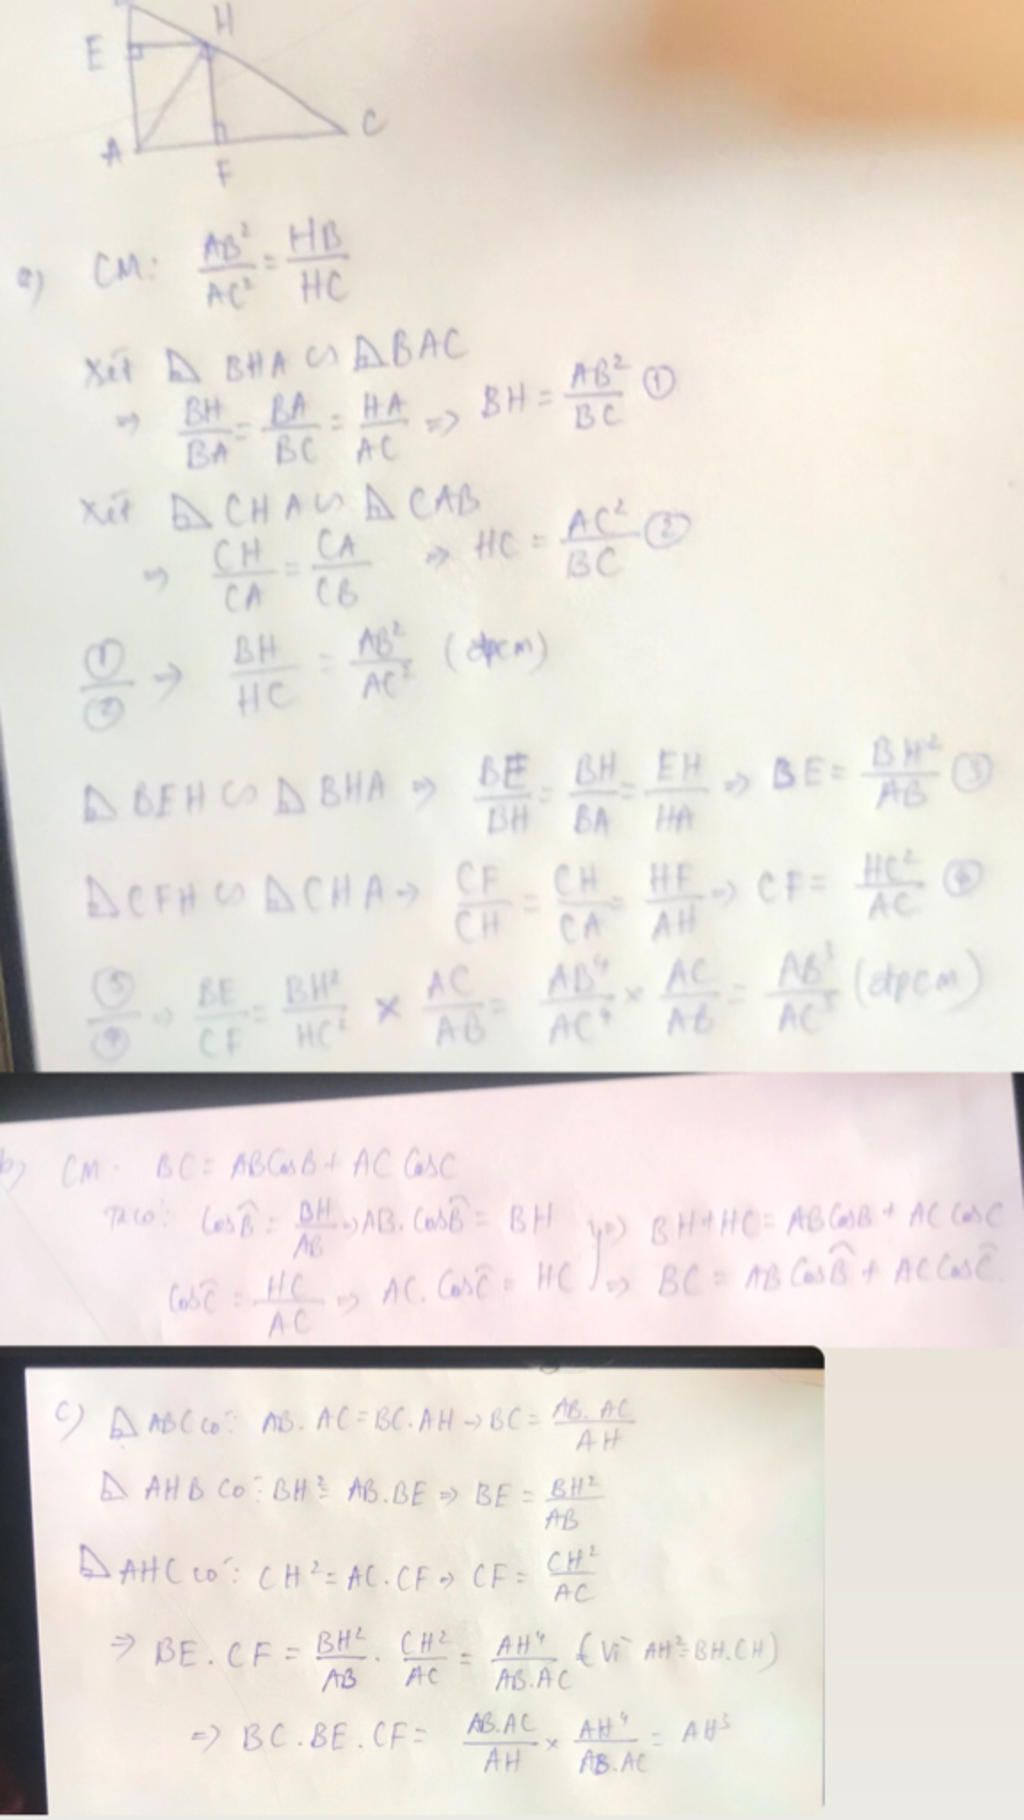 E H
A F C
a) CM: AB²/AC² = HB/HC
Xét ⊿ BHA ∽ ⊿ BAC
⇒ BH/BA = BA/BC = HA/AC ⇒ BH = AB²/BC ①
Xét ⊿ CHA ∽ ⊿ CAB
⇒ CH/CA = CA/CB ⇒ HC = AC²/BC ②
①/② → BH/HC = AB²/AC² (đpcm)
⊿ BEH ∽ ⊿ BHA ⇒ BE/BH = BH/BA = EH/HA ⇒ BE = BH²/AB ③
⊿ CFH ∽ ⊿ CHA ⇒ CF/CH = CH/CA = HF/AH ⇒ CF = HC²/AC ④
③/④ ⇒ BE/CF = BH²/HC² × AC/AB = AB⁴/AC⁴ × AC/AB = AB³/AC³ (đpcm)
b) CM: BC = AB CosB + AC CosC
Ta có: CosB̂ = BH/AB ⇒ AB. CosB̂ = BH } ⇒ BH+HC = AB CosB + AC CosC
CosĈ = HC/AC ⇒ AC. CosĈ = HC ⇒ BC = AB CosB̂ + AC CosĈ
c) ⊿ ABC có: AB. AC = BC. AH → BC = AB. AC/AH
⊿ AHB có: BH² = AB. BE ⇒ BE = BH²/AB
⊿ AHC có: CH² = AC. CF ⇒ CF = CH²/AC
⇒ BE. CF = BH²/AB . CH²/AC = AH⁴/AB.AC (Vì AH² = BH.CH)
⇒ BC. BE. CF = AB.AC/AH × AH⁴/AB.AC = AH³